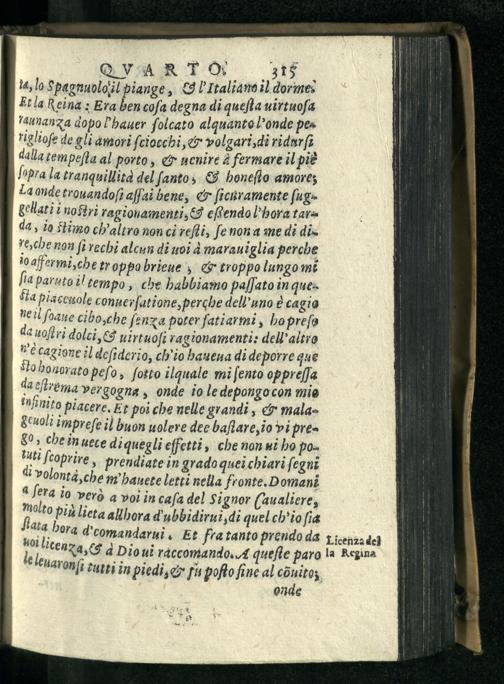 QVARTO. 315
ta, lo Spagnuolo il piange, & l'Italiano il dorme.
Et la Reina: Era ben cosa degna di questa uirtuosa
raunanza dopo l'hauer solcato alquanto l'onde pe-
rigliose de gli amori sciocchi, & volgari, di ridursi
dalla tempesta al porto, & uenire à fermare il piè
sopra la tranquillità del santo, & honesto amore;
La onde trouandosi assai bene, & sicuramente sug-
gellati i nostri ragionamenti, & essendo l'hora tar-
da, io stimo ch'altro non ci resti, se non a me di di-
re, che non si rechi alcun di uoi à marauiglia perche
io affermi, che troppo brieue, & troppo lungo mi
sia paruto il tempo, che habbiamo passato in que-
sta piaceuole conuersatione, perche dell'uno è cagio
ne il soaue cibo, che senza poter satiarmi, ho preso
da uostri dolci, & uirtuosi ragionamenti: dell'altro
n'è cagione il desiderio, ch'io haueua di deporre que
sto honorato peso, sotto ilquale mi sento oppressa
da estrema vergogna, onde io le depongo con mio
infinito piacere. Et poi che nelle grandi, & mala-
geuoli imprese il buon uolere dee bastare, io vi pre-
go, che in uece di quegli effetti, che non ui ho po-
tuti scoprire, prendiate in grado quei chiari segni
di volontà, che m'hauete letti nella fronte. Domani
a sera io verò a voi in casa del Signor Caualiere,
molto più lieta allhora d'ubbidirui, di quel ch'io sia
stata hora d'comandarui. Et fra tanto prendo da
uoi licenza, & à Dio ui raccomando. A queste paro
le leuaronsi tutti in piedi, & fu posto fine al cōuito;
Licenza del
la Regina
onde